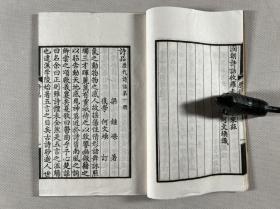 何文煥識
詩品 歷代詩話第一冊
梁 鍾嶸 著
復堂 何文煥 訂
氣之動物物之感人故搖蕩性情形諸舞詠照
燭三才輝麗萬有靈祇待之以致饗幽微藉之
以昭告動天地感鬼神莫近於詩昔南風之詞
卿雲之頌厥義夐矣夏歌曰鬱陶乎予心楚謠
曰名余曰正則雖詩體未全然是五言之濫觴
也逮漢李陵始著五言之目矣古詩眇邈人世